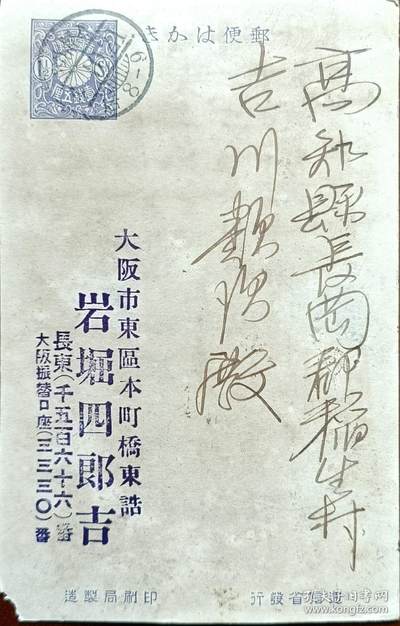 郵便はかき
高知縣長岡郡稲生村
吉川類次殿
大阪市東區本町橋東詰
岩堀四郎吉
長東(千五百六十六)番
大阪振替口座(三三三〇)番
印刷局製造
遞信省發行
孔夫子旧书网
www.kongfz.com